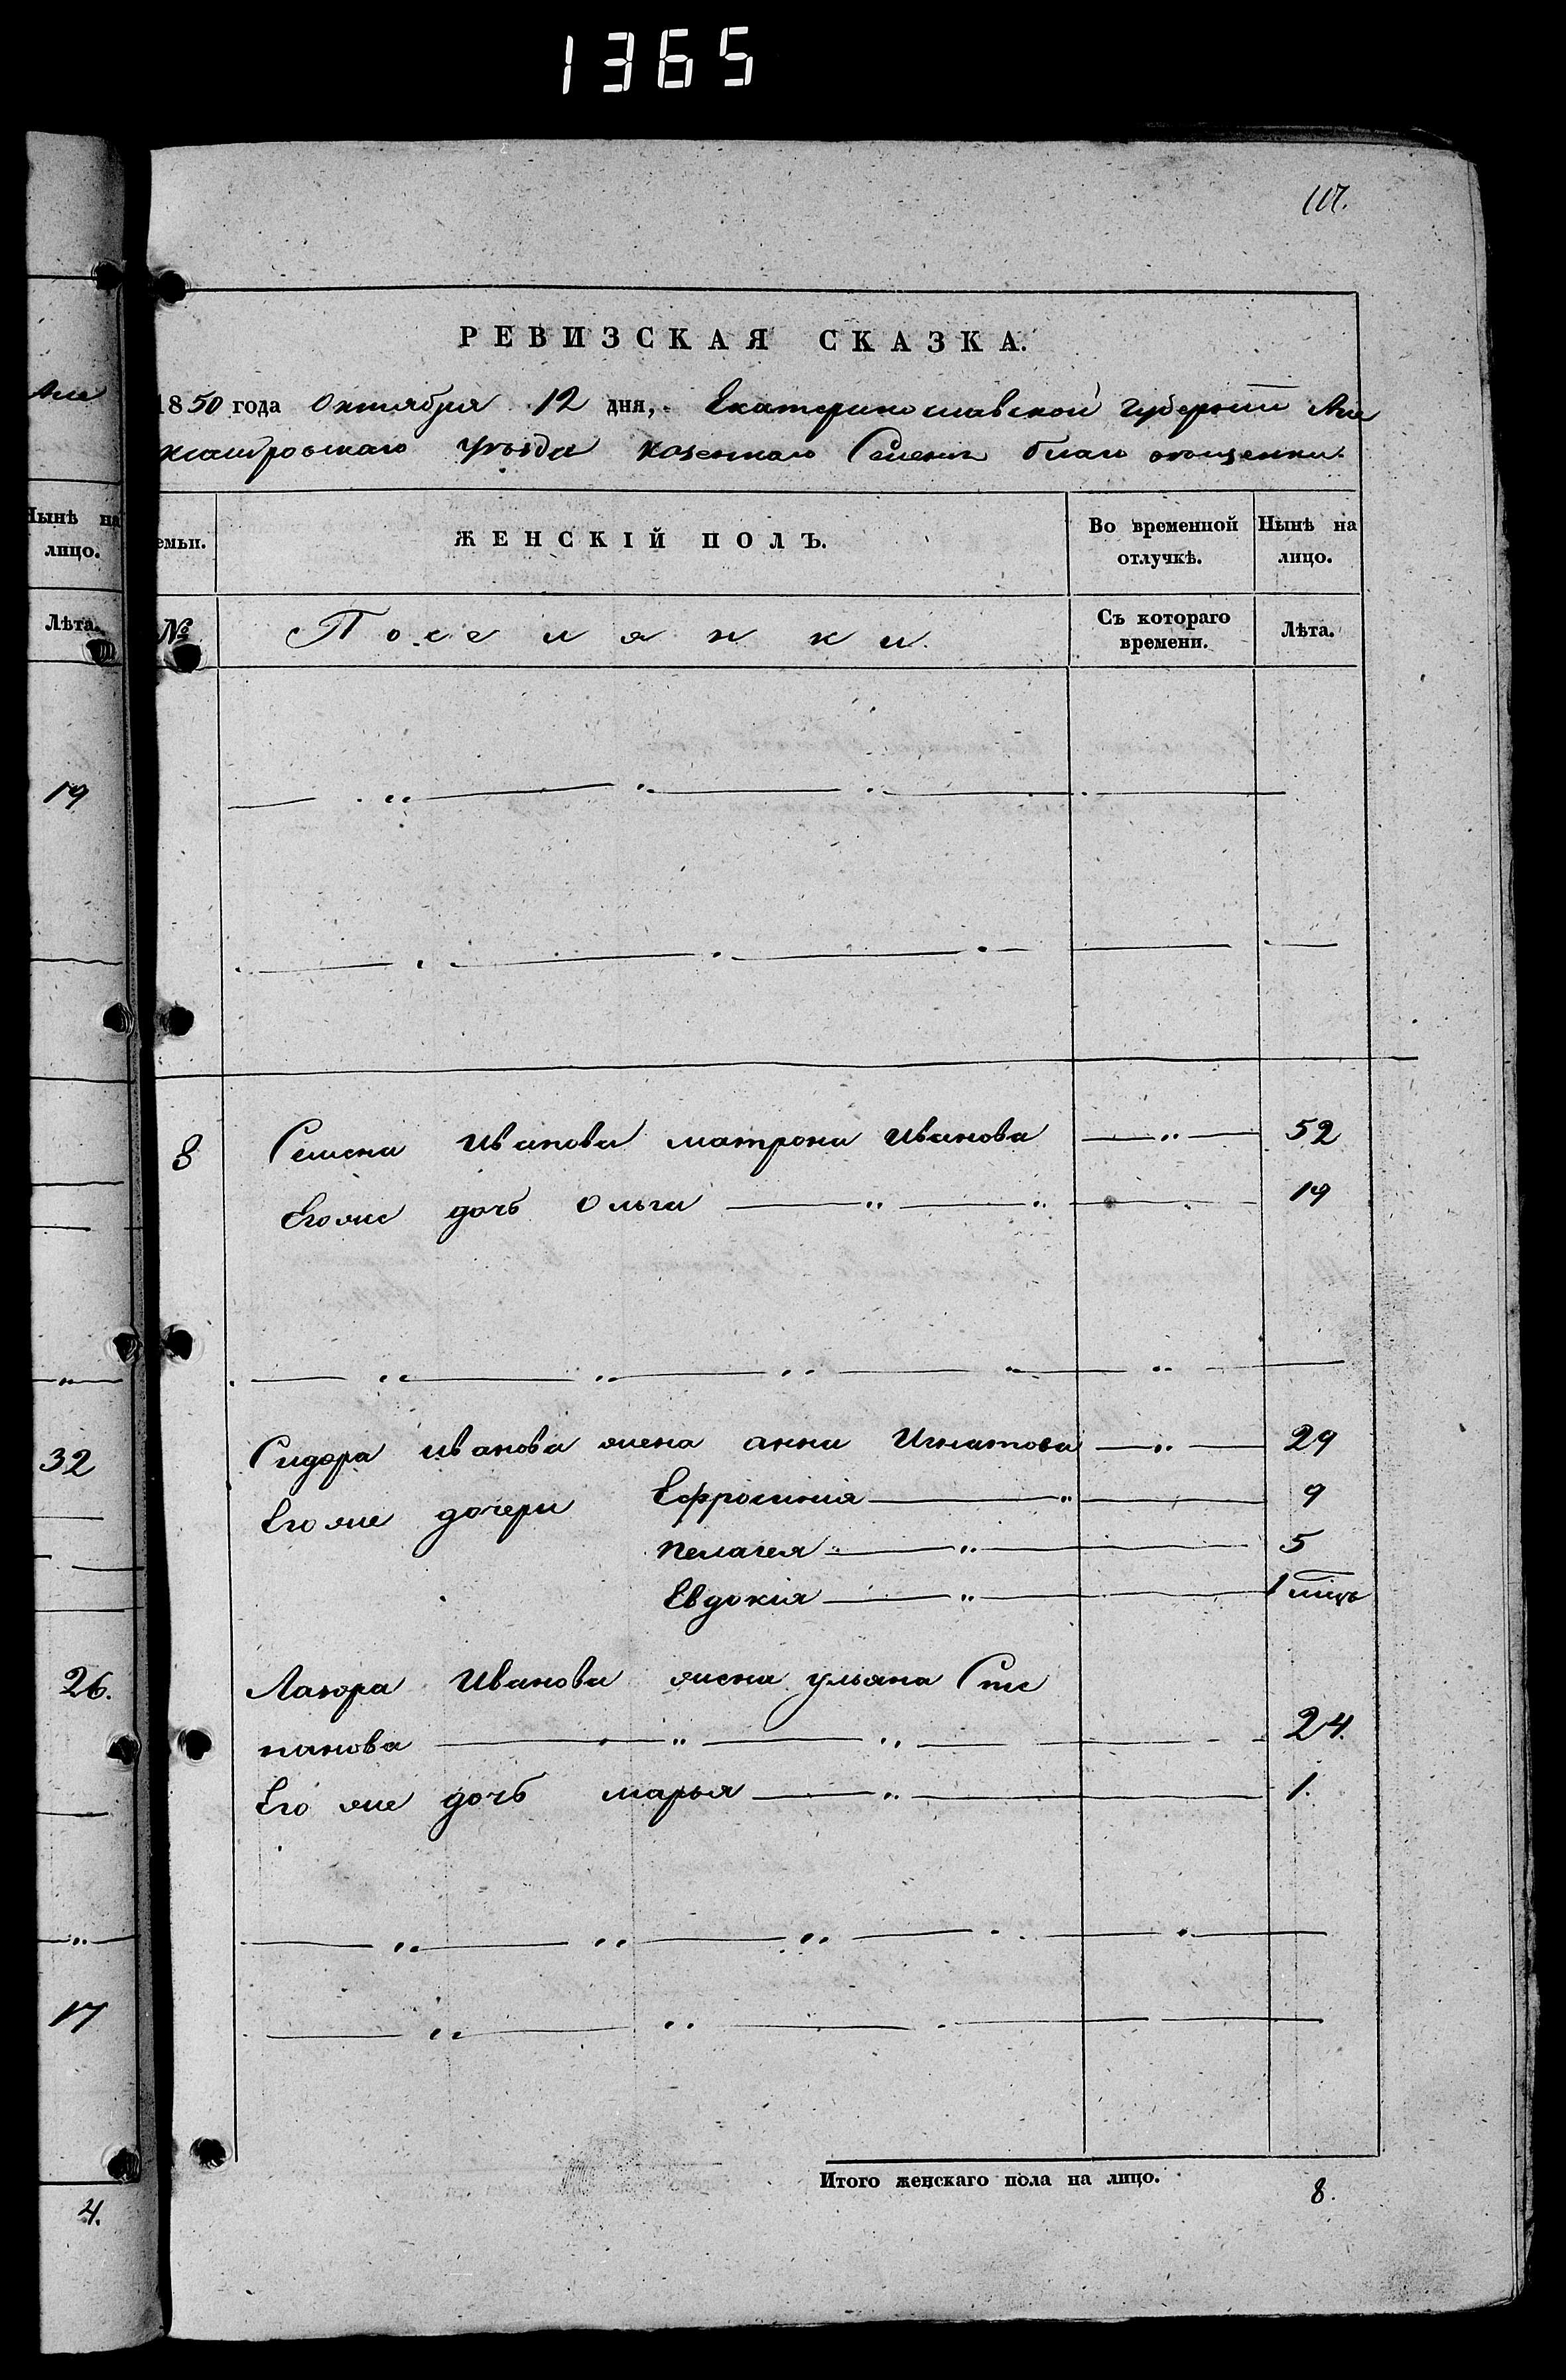 1365
117.
РЕВИЗСКАЯ СКАЗКА.
1850 года Октября 12 дня, Екатеринославской губернии Але
ксандровскаго уезда казеннаго Селения благовещенки
Нынѣ на лицо.
Лѣта.
емьи.
ЖЕНСКІЙ ПОЛЪ.
Во временной отлучкѣ.
Нынѣ на лицо.
№
Поселянки.
Съ котораго времени.
Лѣта.
19
8 Семена Иванова матрона Иванова 52
Егоже дочь Ольга 19
32
Сидора иванова жена анна Игнатова 29
Егоже дочери Ефросиния 9
пелагея 5
Евдокія 1 мць
26.
Лазора Иванова жена ульяна Сте
панова 24.
Его же дочь марья 1.
17
Итого женскаго пола на лицо. 8.
4.